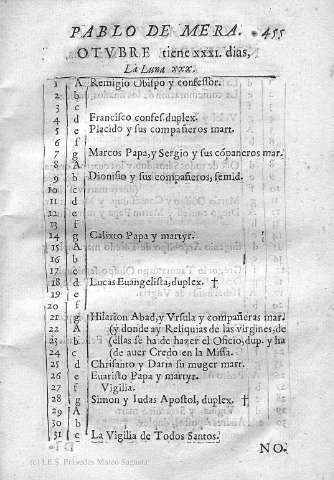 PABLO DE MERA. 455
OTVBRE tiene XXXI. dias,
La Luna xxx.
1 A Remigio Obispo y confessor.
2 b
3 c
4 d Francisco confes. duplex.
5 e Placido y sus compañeros mart.
6 f
7 g Marcos Papa, y Sergio y sus cópaneros mar.
8 A
9 b Dionisio y sus compañeros, semid.
10 c
11 d
12 e
13 f
14 g Calixto Papa y martyr.
15 A
16 b
17 c
18 d Lucas Euangelista, duplex. †
19 e
20 f
21 g Hilarion Abad, y Vrsula y compañeras mar.
22 A (y donde ay Reliquias de las virgines, de
23 b (ellas se ha de hazer el Oficio, dup. y ha
24 c (de auer Credo en la Missa.
25 d Chrisanto y Daria su muger mart.
26 e Euaristo Papa y martyr.
27 f Vigilia.
28 g Simon y Iudas Apostol, duplex. †
29 A
30 b
31 c La Vigilia de Todos Santos.
NO.
(c) I.E.S. Práxedes Mateo Sagasta